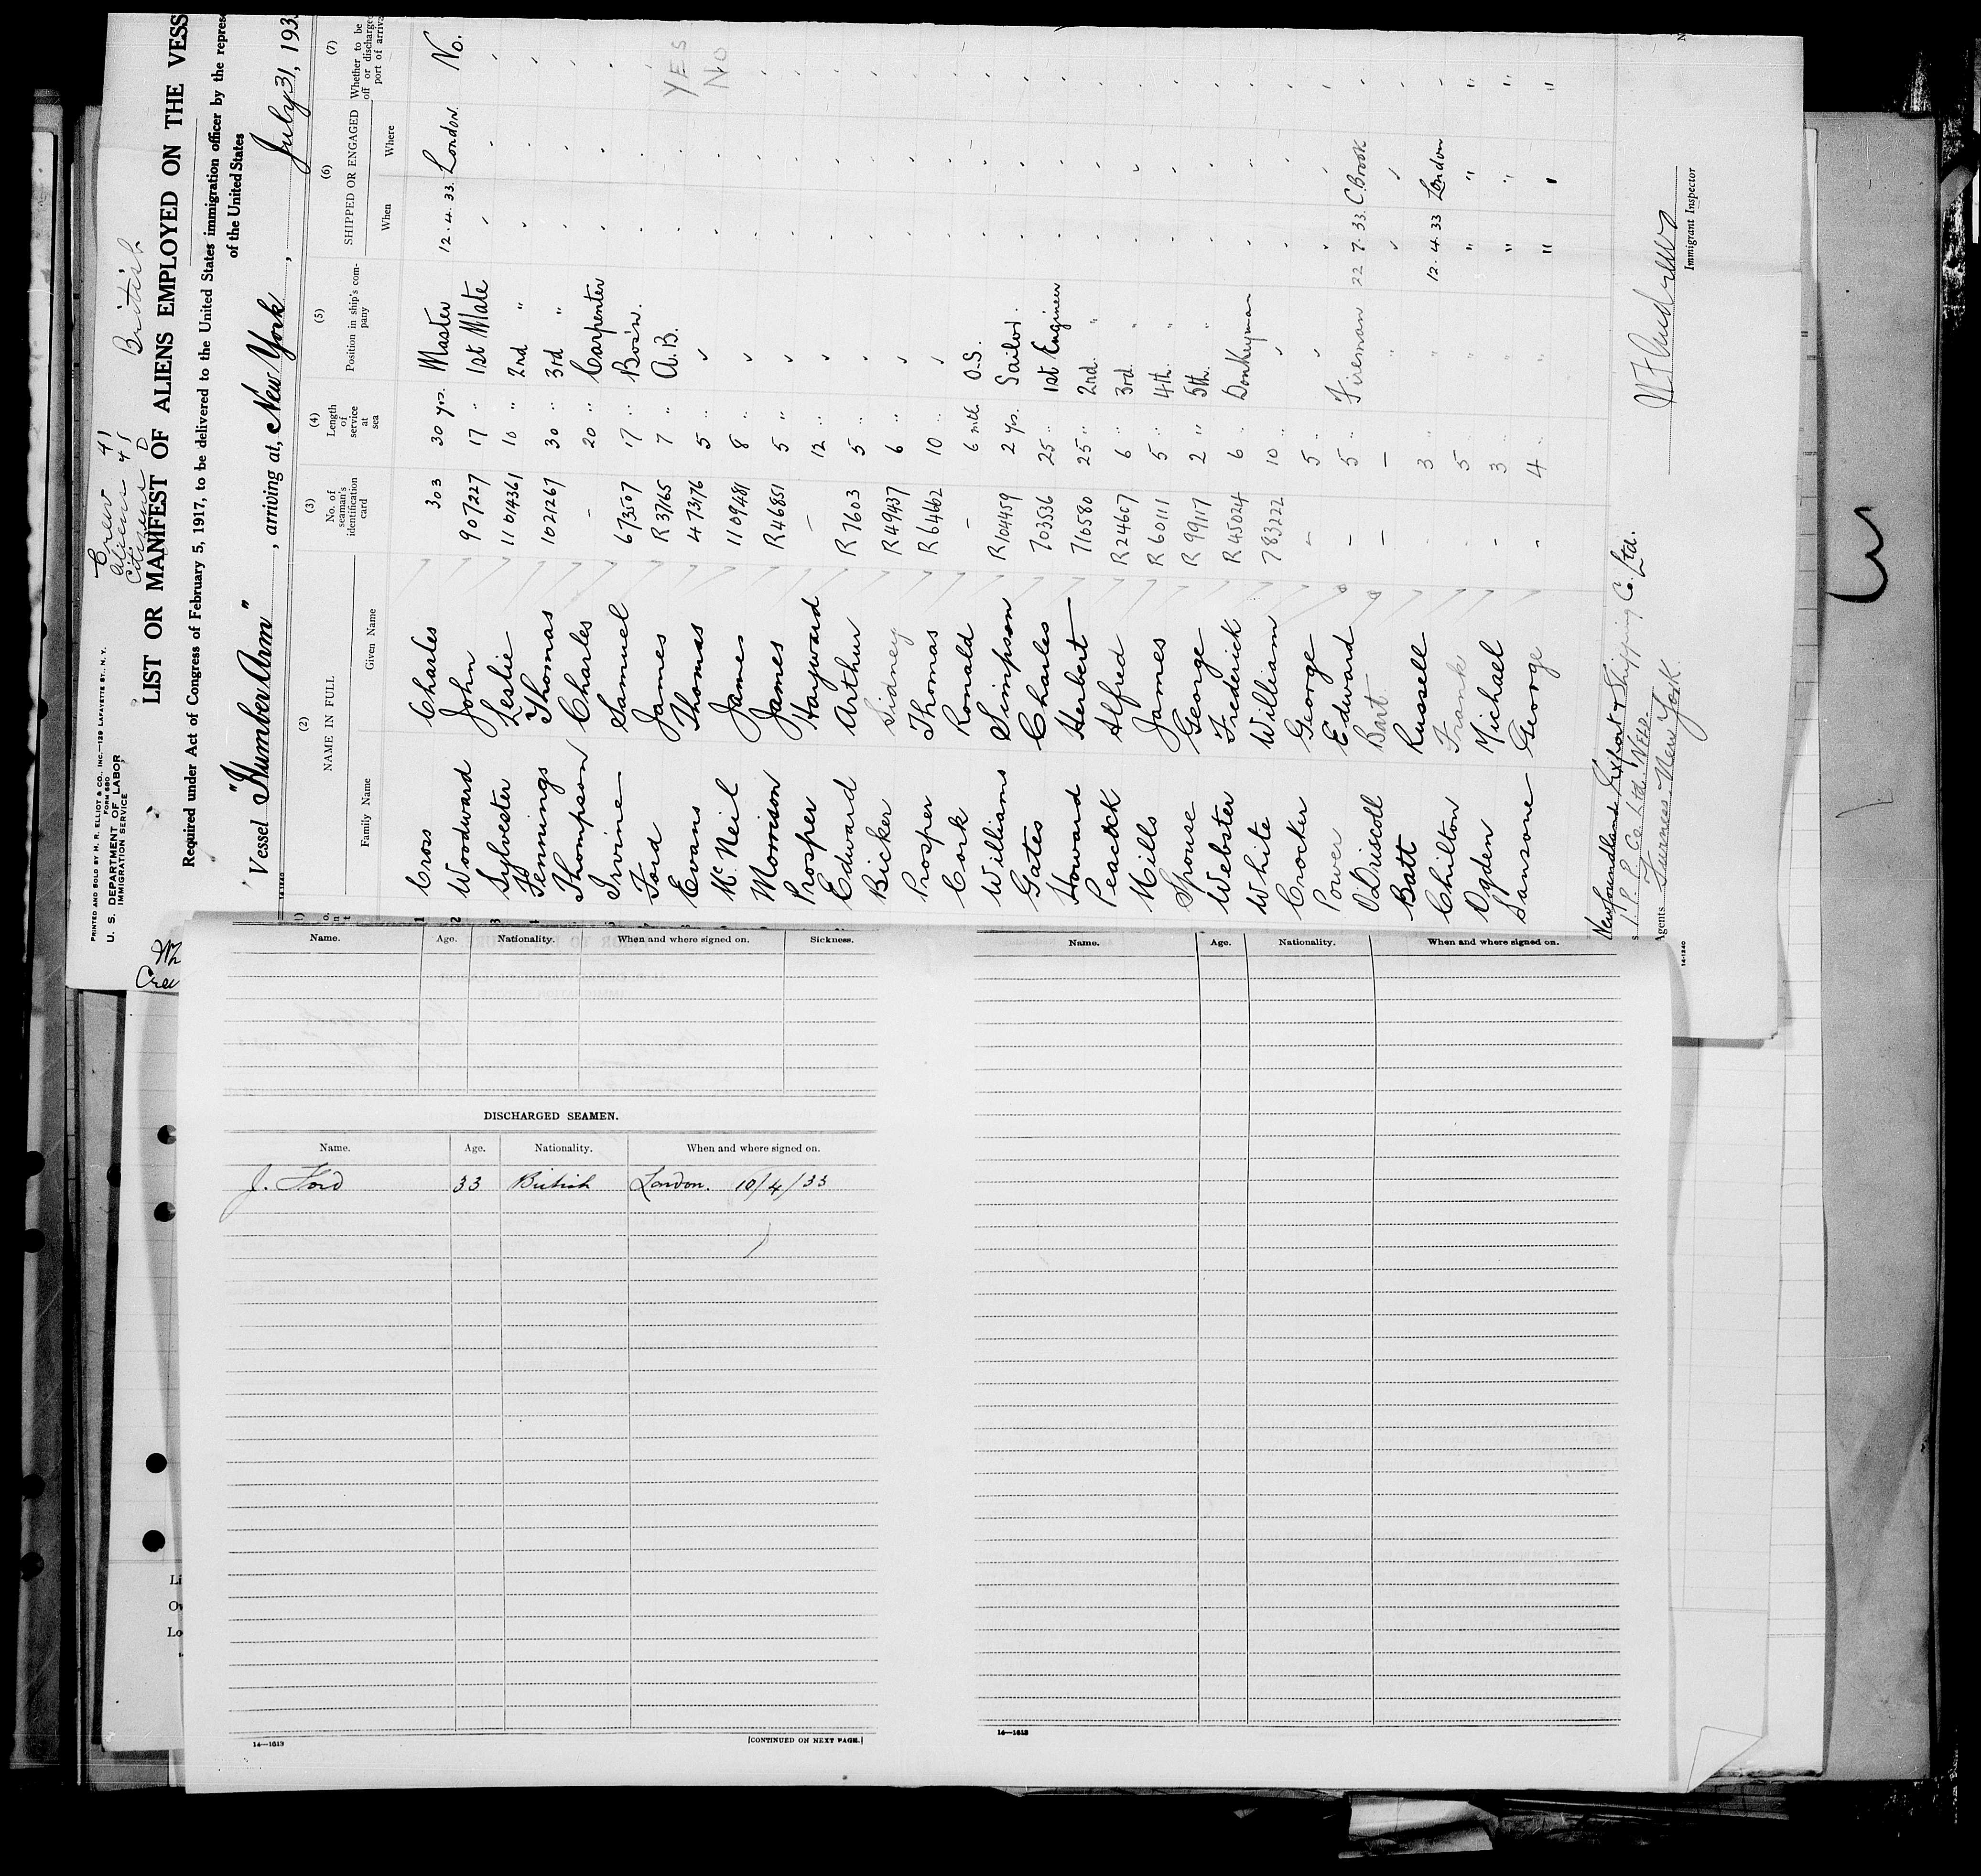 PRINTED AND SOLD BY H. R. ELLIOT & CO., INC.—129 LAFAYETTE ST., N. Y.
FORM 680
U. S. DEPARTMENT OF LABOR
IMMIGRATION SERVICE
Crew 41
Aliens 41
Citizens 0
British
LIST OR MANIFEST OF ALIENS EMPLOYED ON THE VESS
Required under Act of Congress of February 5, 1917, to be delivered to the United States immigration officer by the represe
of the United States
Vessel "Humber Arm", arriving at, New York, July 31, 193
(2) NAME IN FULL (3) No. of seaman's identification card (4) Length of service at sea (5) Position in ship's company (6) SHIPPED OR ENGAGED (7) Whether to be off or discharge port of arriva
Family Name Given Name When Where
1 Cross Charles 303 30 yrs. Master 12.4.33. London. No.
2 Woodward John 907227 17 " 1st Mate
3 Sylvester Leslie 11014361 10 " 2nd "
4 Jennings Thomas 1021267 30 " 3rd "
Thompson Charles - 20 " Carpenter
Irvine Samuel 673507 17 " Bos'n.
Ford James R 37165 7 " A.B. YES
Evans Thomas 473176 5 " No
McNeil James 1109481 8 "
Morrison James R46851 5 "
Prosper Hayward - 12 "
Edward Arthur R 7603 5 "
Bicker Sidney R49437 6 "
Prosper Thomas R64462 10 "
Cork Ronald - 6 mth. O.S.
Williams Simpson R104459 2 yrs. Sailor.
Gates Charles 703536 25 " 1st Engineer
Howard Herbert 710580 25 " 2nd. "
Peacock Alfred R24607 6 " 3rd. "
Mills James R 60111 5 " 4th. "
Spouse George R 99117 2 " 5th. "
Webster Frederick R45024 6 " Donkeyman
White William 783222 10 "
Crocker George - 5 "
Power Edward - 5 " Fireman 22 7. 33. C.Brook
O'Driscoll Bart - - "
Batt Russell - 3 " " 12.4.33 London
Chilton Frank - 5 " " " "
Ogden Michael - 3 " " " "
Sansone George - 4 " " " "
Newfoundland Export & Shipping Co. Ltd.
Agents Furness New York.
Immigrant Inspector
14-1240
Crew
Name. Age. Nationality. When and where signed on. Sickness.
DISCHARGED SEAMEN.
Name. Age. Nationality. When and where signed on.
J. Ford 33 British London. 10/4/33
14—1613
[CONTINUED ON NEXT PAGE.]
Name. Age. Nationality. When and where signed on.
14—1613